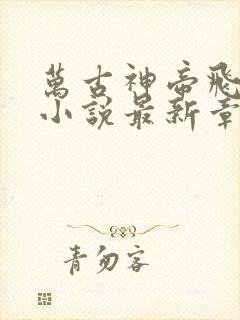 萬古神帝飛
小說最新章
青勿客